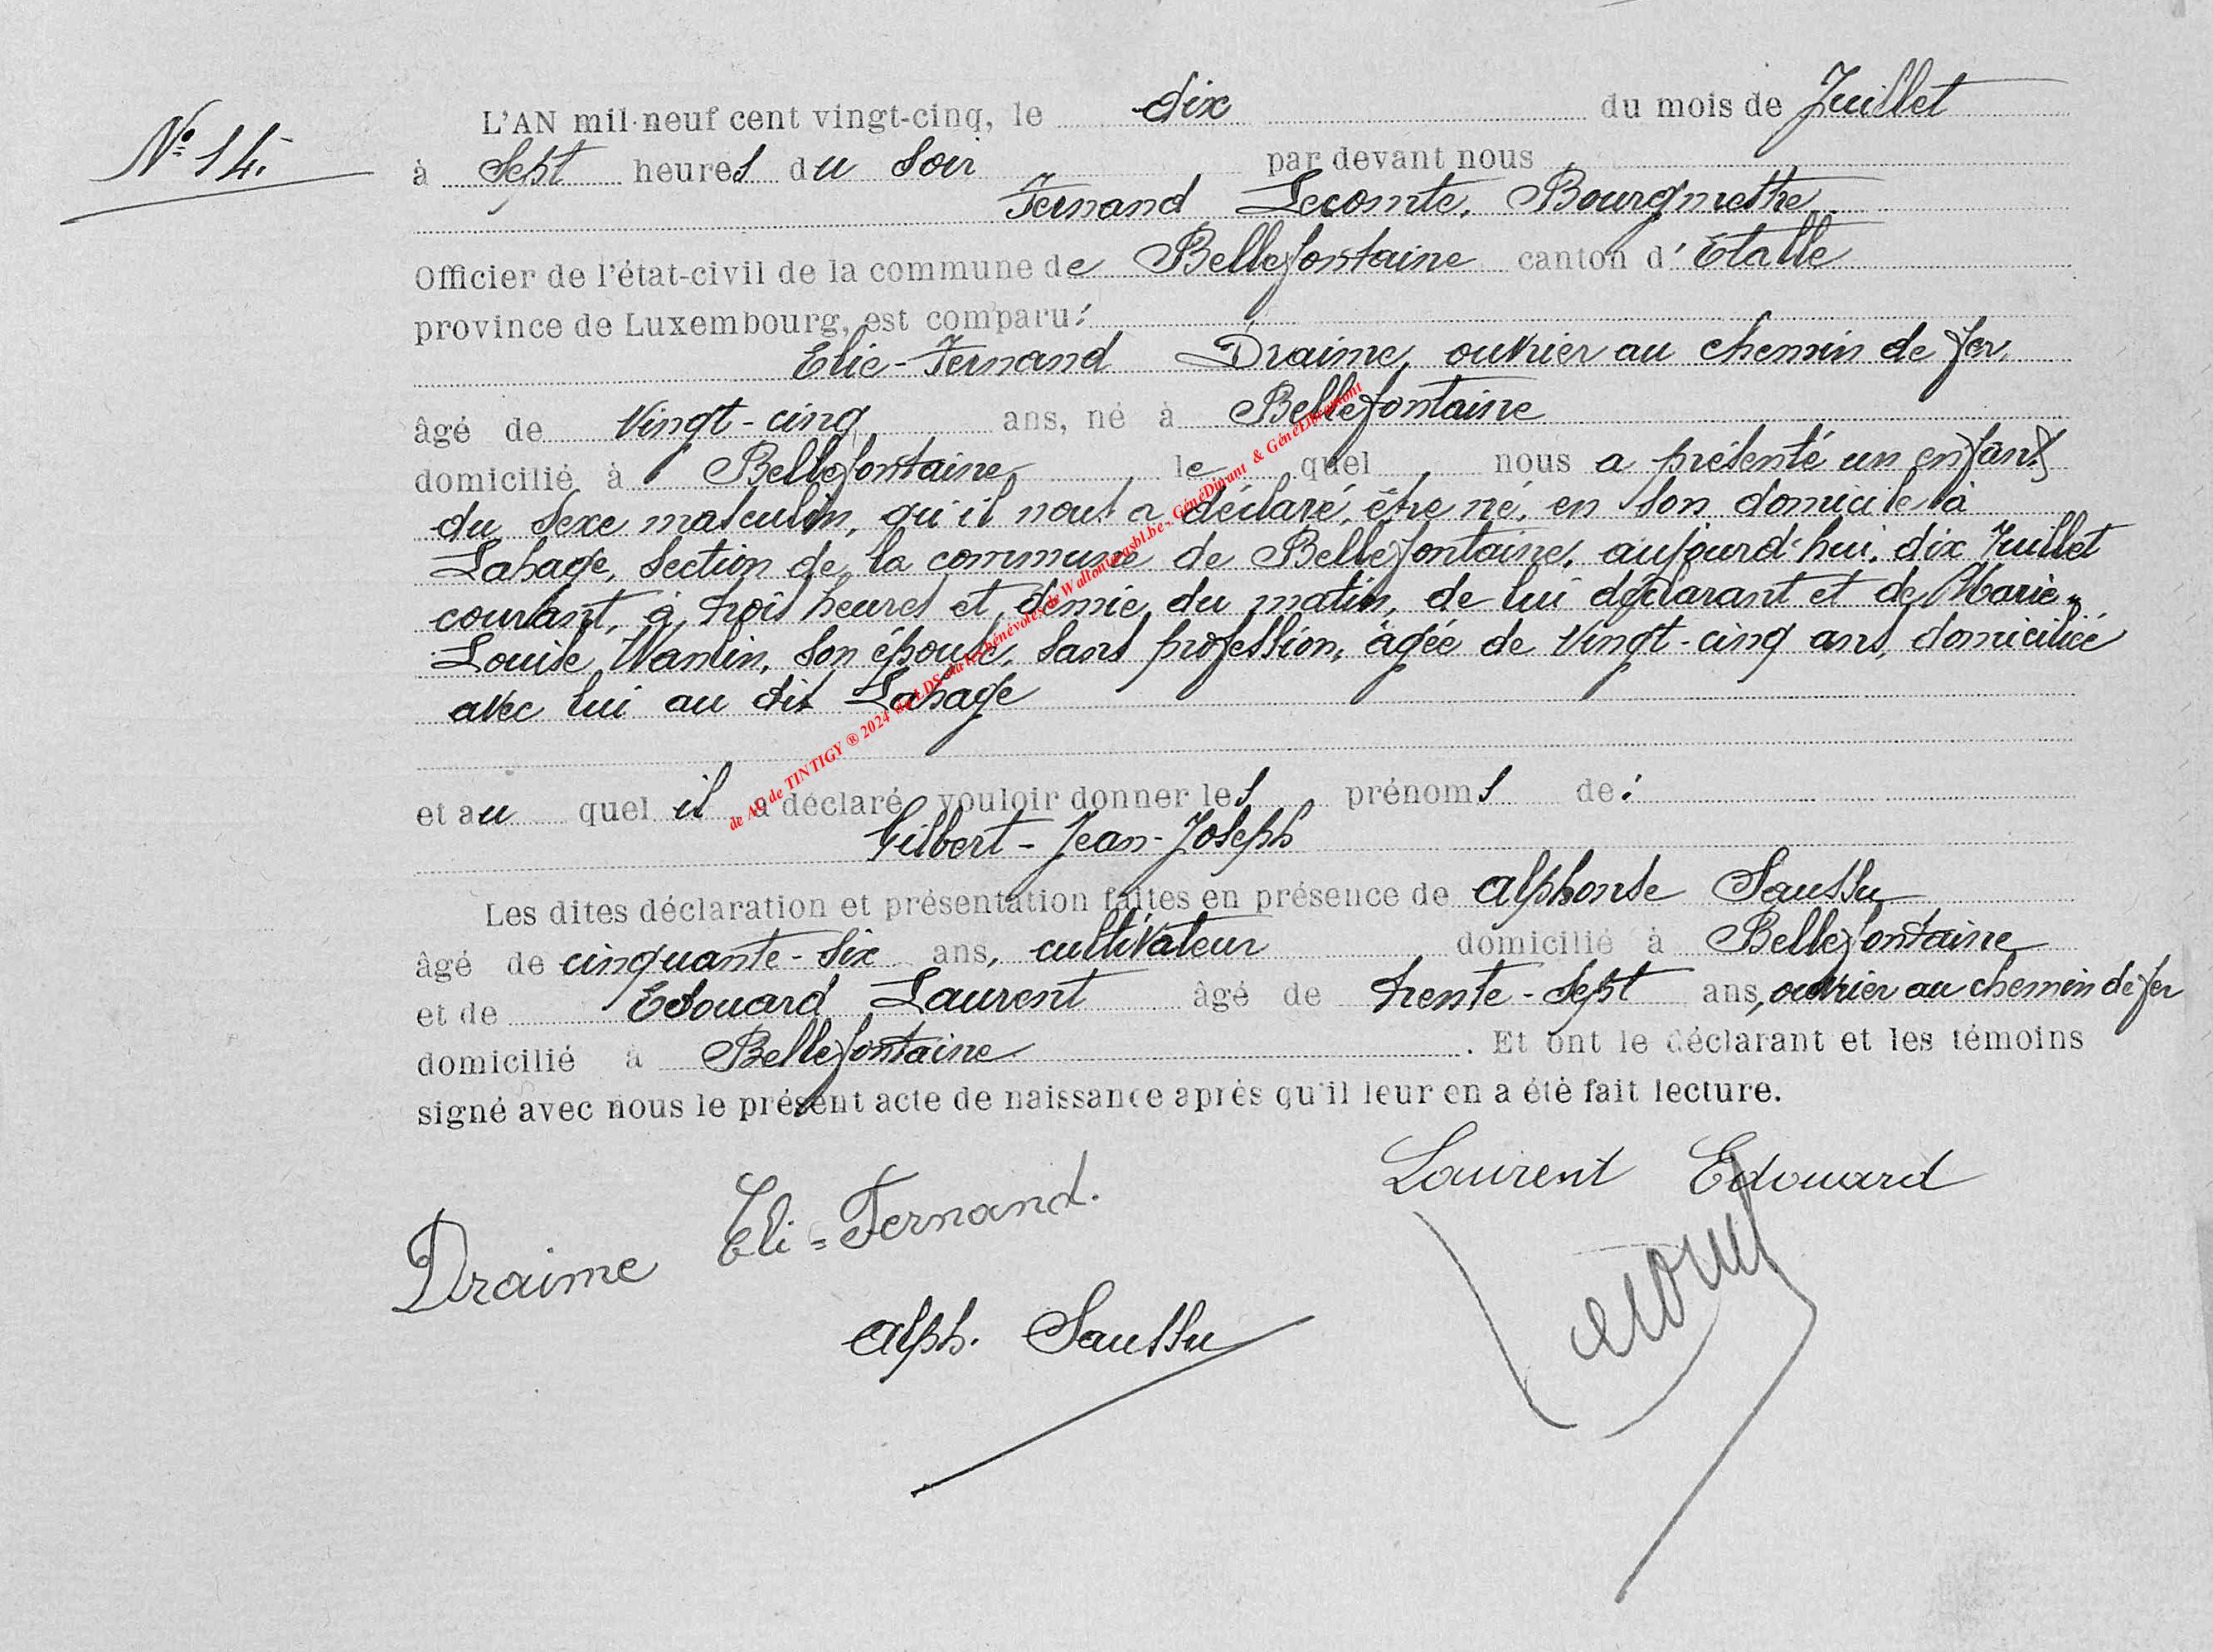 N° 14.
L'AN mil neuf cent vingt-cinq, le dix du mois de Juillet
à Sept heures du Soir par devant nous
Fernand Lecomte, Bourgmestre
Officier de l'état-civil de la commune de Bellefontaine canton d'Etalle
province de Luxembourg, est comparu:
Elie-Fernand Draime, ouvrier au chemin de fer,
âgé de Vingt-cinq ans, né à Bellefontaine
domicilié à Bellefontaine lequel nous a présenté un enfant
du Sexe masculin, qu'il nous a déclaré, être né, en Son domicile à
Lahage, Section de la commune de Bellefontaine, aujourd'hui, dix Juillet
courant, à trois heures et demie du matin, de lui déclarant et de Marie-
Louise Wanlin, Son épouse, Sans profession, âgée de Vingt-cinq ans, domiciliée
avec lui au dit Lahage
et au quel il a déclaré vouloir donner les prénoms de:
Gilbert-Jean-Joseph
Les dites déclaration et présentation faites en présence de Alphonse Saussu
âgé de cinquante-six ans, cultivateur domicilié à Bellefontaine
et de Edouard Laurent âgé de trente-Sept ans, ouvrier au chemin de fer
domicilié à Bellefontaine. Et ont le déclarant et les témoins
signé avec nous le présent acte de naissance après qu'il leur en a été fait lecture.
Laurent Edouard
Draime Eli=Fernand.
Alph. Saussu
de AC de TINTIGY ® 2024 by LDS via les bénévoles de Wallonia asbl.be - GénéDinant & GénéLibramont